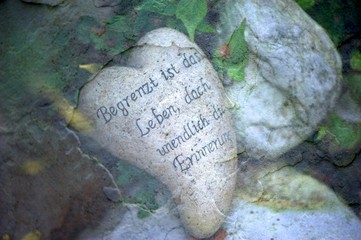 Begrenzt ist das
Leben, doch
unendlich die
Erinnerung